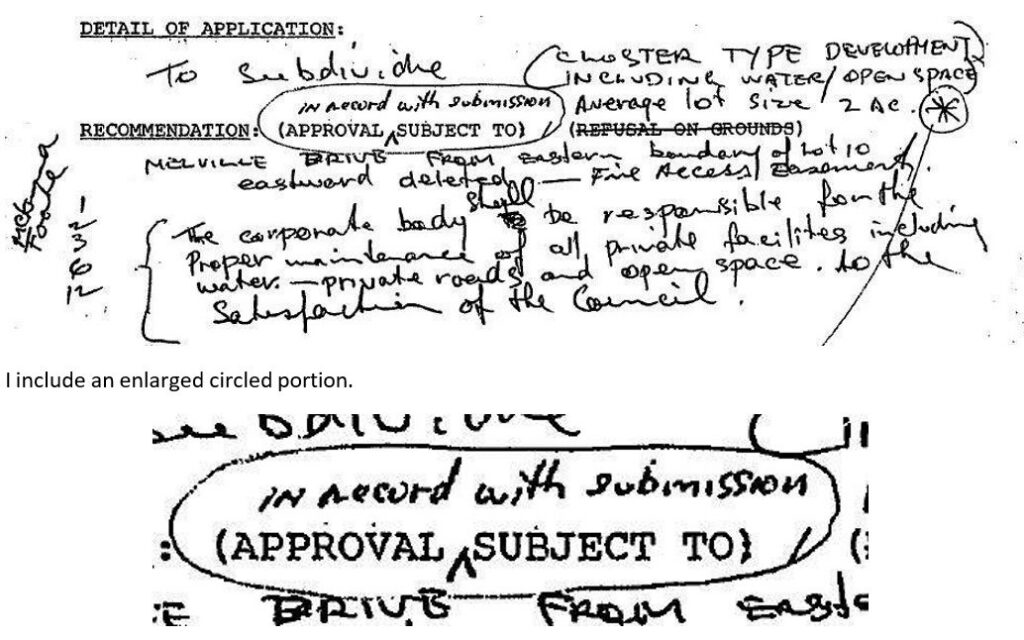 DETAIL OF APPLICATION:
To Subdivide (CLUSTER TYPE DEVELOPMENT
INCLUDING WATER/OPEN SPACE)
in record with submission Average lot size 2 AC. *
RECOMMENDATION: (APPROVAL ^ SUBJECT TO) / (REFUSAL ON GROUNDS)
MELVILLE DRIVE FROM Eastern boundary of Lot 10
eastward deleted — Fire Access/Easement.
1
2
3
6
12
The corporate body shall be responsible for the
Proper maintenance of all private facilites including
water. — private roads and open space. to the
Satisfaction of the Council.
I include an enlarged circled portion.
Subdivide
in record with submission
: (APPROVAL ^ SUBJECT TO) / (
E DRIVE FROM Easte